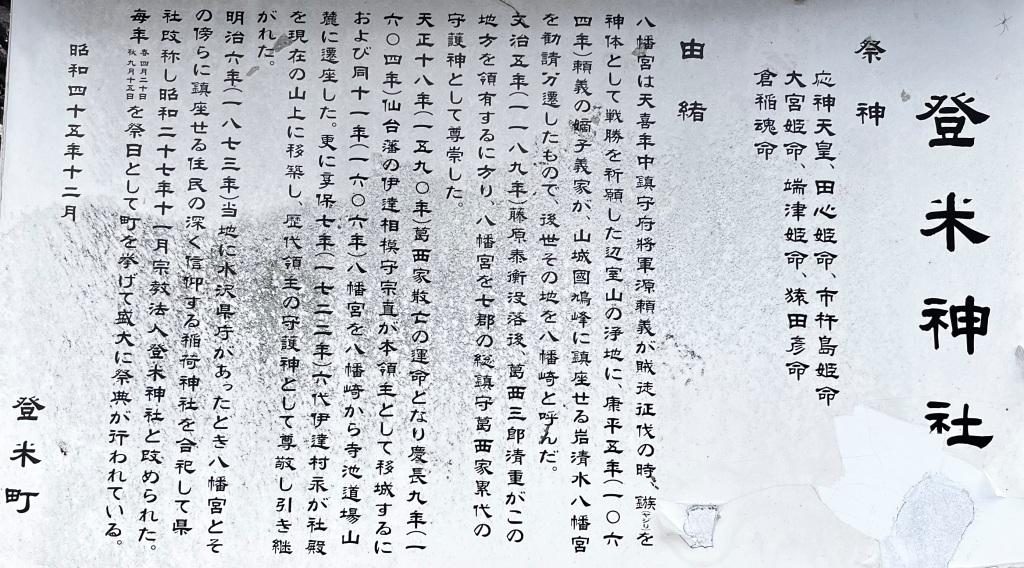 登米神社
祭神
応神天皇、田心姫命、市杵島姫命
大宮姫命、端津姫命、猿田彦命
倉稲魂命
由緒
八幡宮は天喜年中鎮守府将軍源頼義が賊徒征伐の時、鏃ヤジリを
神体として戦勝を祈願した辺室山の浄地に、康平五年(一〇六
四年)頼義の嫡子義家が、山城國鳩峰に鎮座せる岩清水八幡宮
を勧請万遷したもので、後世その地を八幡崎と呼んだ。
文治五年(一一八九年)藤原泰衡没落後、葛西三郎清重がこの
地方を領有するに方り、八幡宮を七郡の総鎮守葛西家累代の
守護神として尊崇した。
天正十八年(一五九〇年)葛西家散亡の運命となり慶長九年(一
六〇四年)仙台藩の伊達相模守宗直が本領主として移城するに
および同十一年(一六〇六年)八幡宮を八幡崎から寺池道場山
麓に遷座した。更に享保七年(一七二二年)六代伊達村永が社殿
を現在の山上に移築し、歴代領主の守護神として尊敬し引き継
がれた。
明治六年(一八七三年)当地に水沢県庁があったとき八幡宮とそ
の傍らに鎮座せる住民の深く信仰する稲荷神社を合祀して県
社改称し昭和二十七年十一月宗教法人登米神社と改められた。
毎年春四月二十日秋九月十五日を祭日として町を挙げて盛大に祭典が行われている。
昭和四十五年十二月
登米町